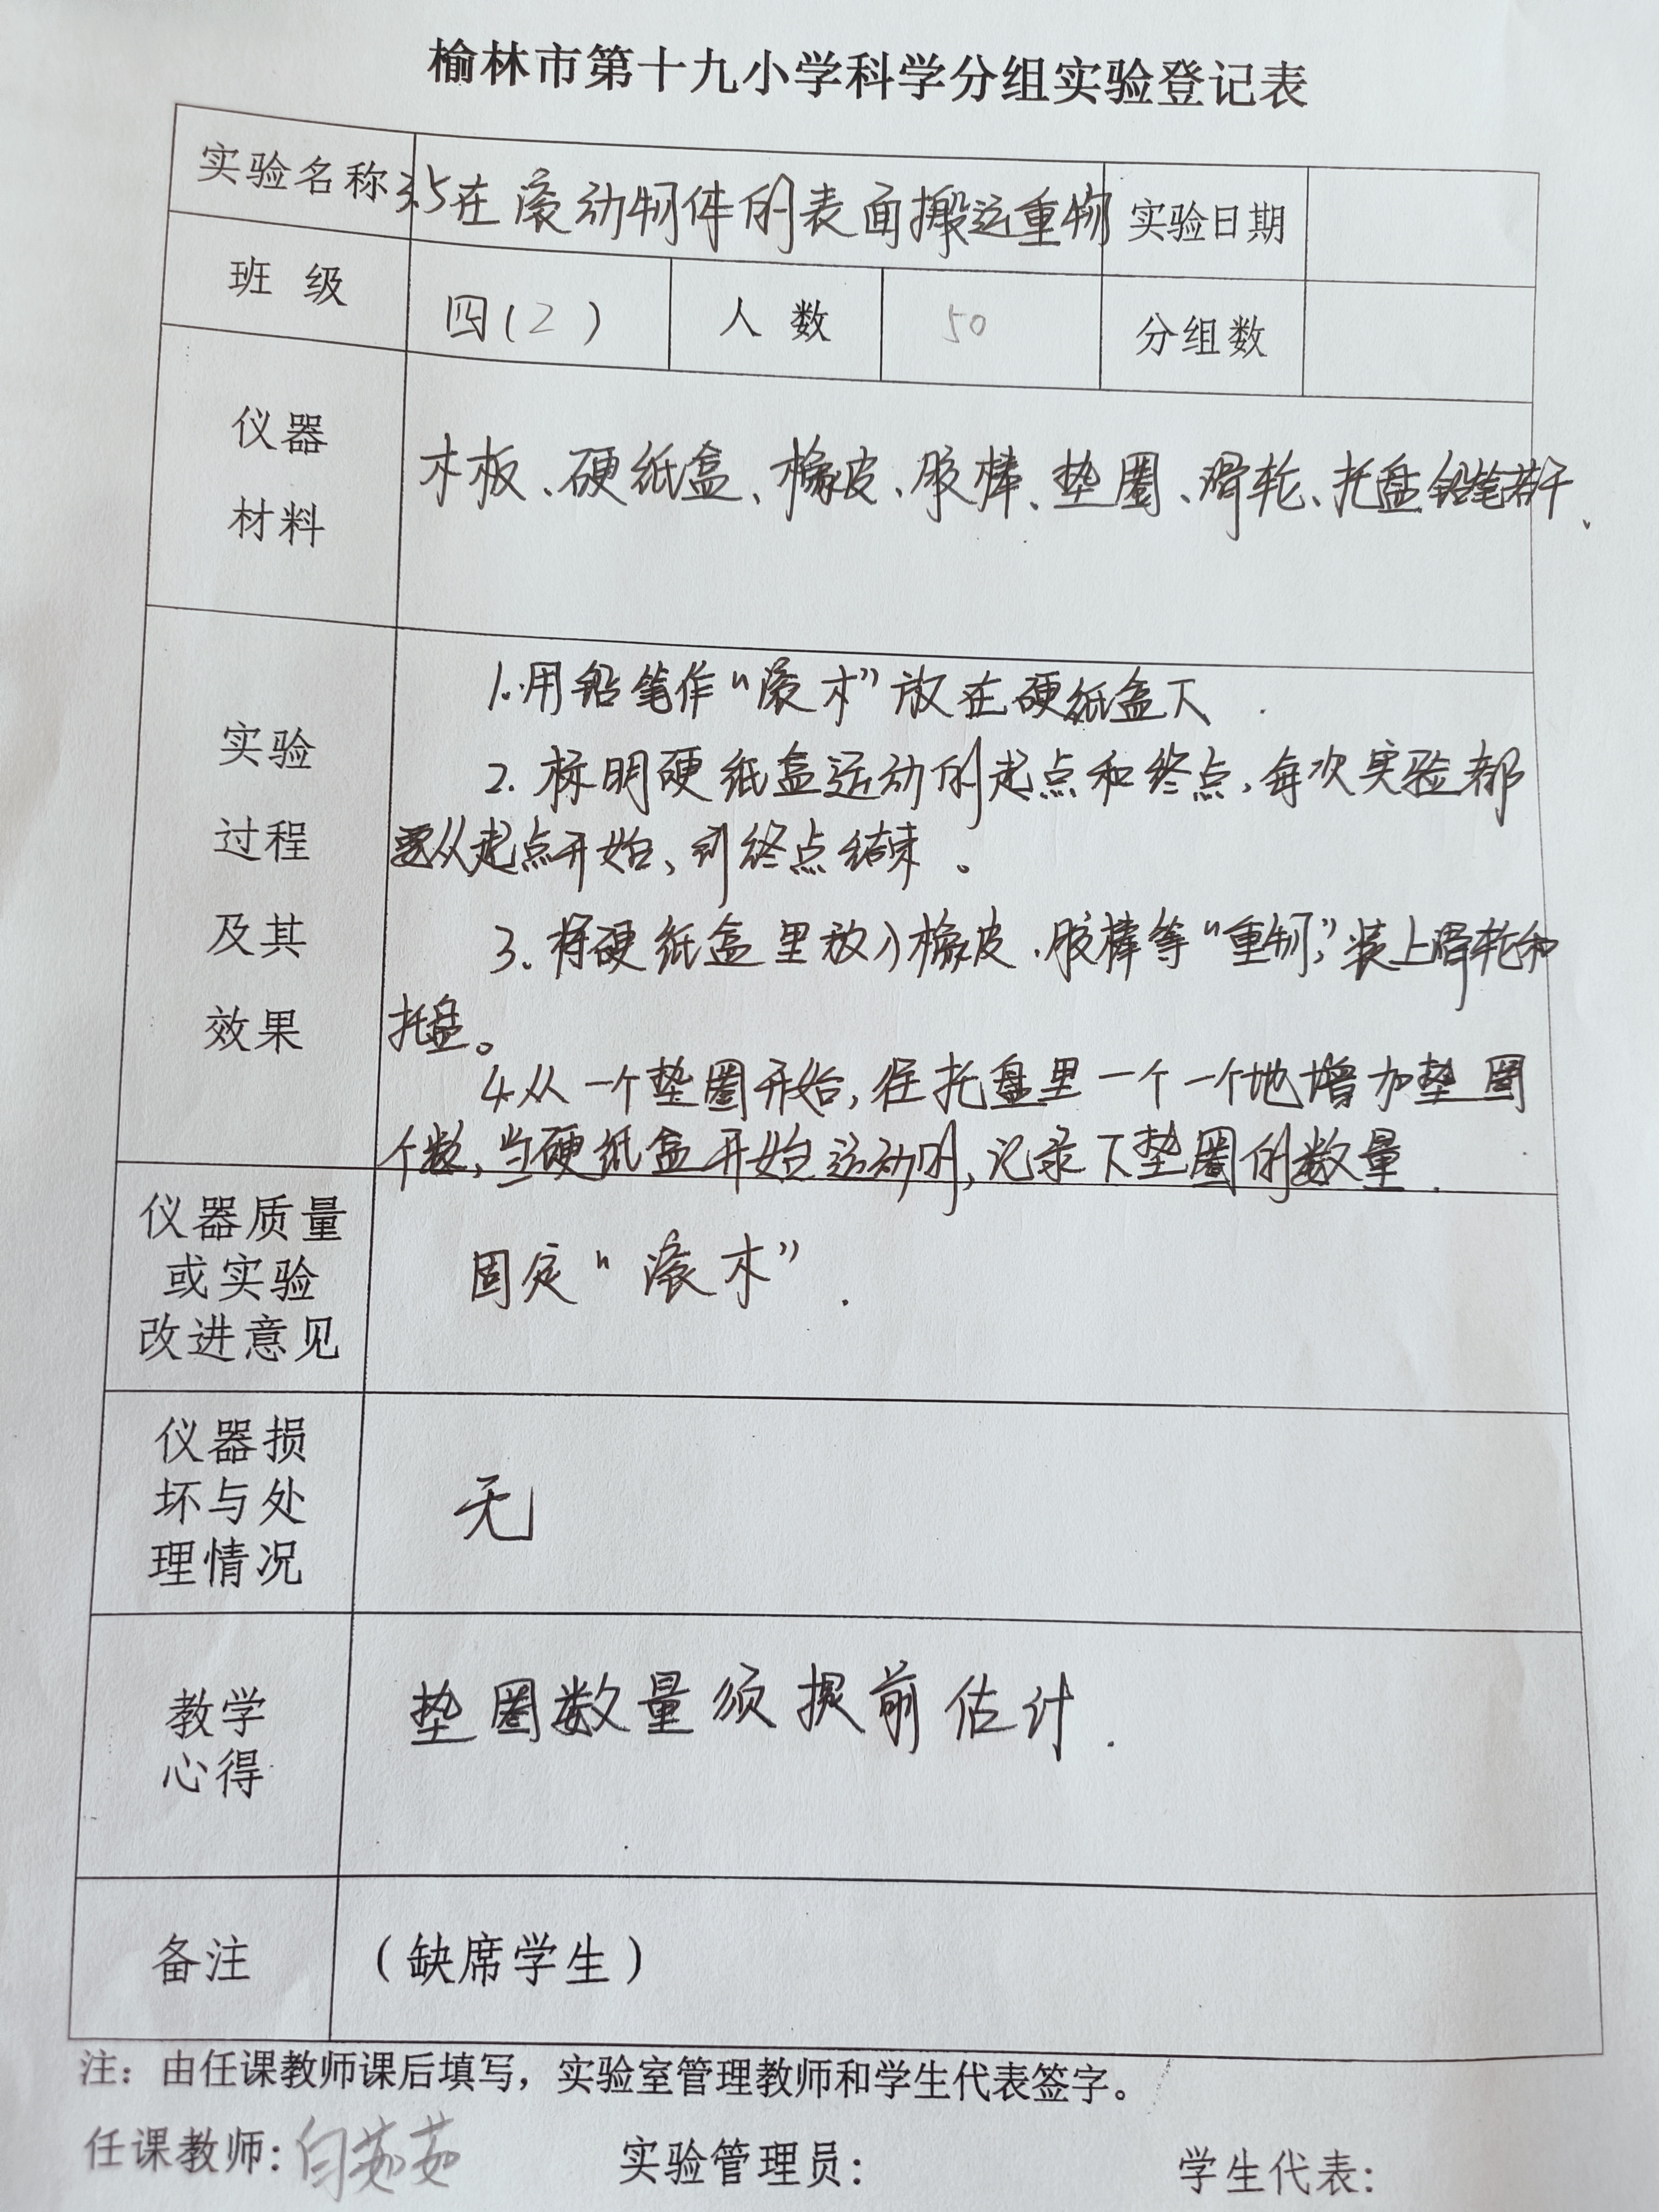 榆林市第十九小学科学分组实验登记表
实验名称 3.5在滚动物件的表面搬运重物 实验日期
班 级 四(2) 人 数 50 分组数
仪器
材料
木板、硬纸盒、橡皮、胶棒、垫圈、滑轮、托盘、铅笔若干、
实验
过程
及其
效果
1.用铅笔作“滚木”放在硬纸盒下.
2.标明硬纸盒运动的起点和终点,每次实验都
要从起点开始、到终点结束。
3.将硬纸盒里放入橡皮、胶棒等“重物”,装上滑轮和
托盘。
4.从一个垫圈开始,往托盘里一个一个地增加垫圈
个数,当硬纸盒开始运动时,记录下垫圈的数量.
仪器质量
或实验
改进意见
固定“滚木”.
仪器损
坏与处
理情况
无
教学
心得
垫圈数量须提前估计.
备注 (缺席学生)
注:由任课教师课后填写,实验室管理教师和学生代表签字。
任课教师:白茹茹 实验管理员: 学生代表: